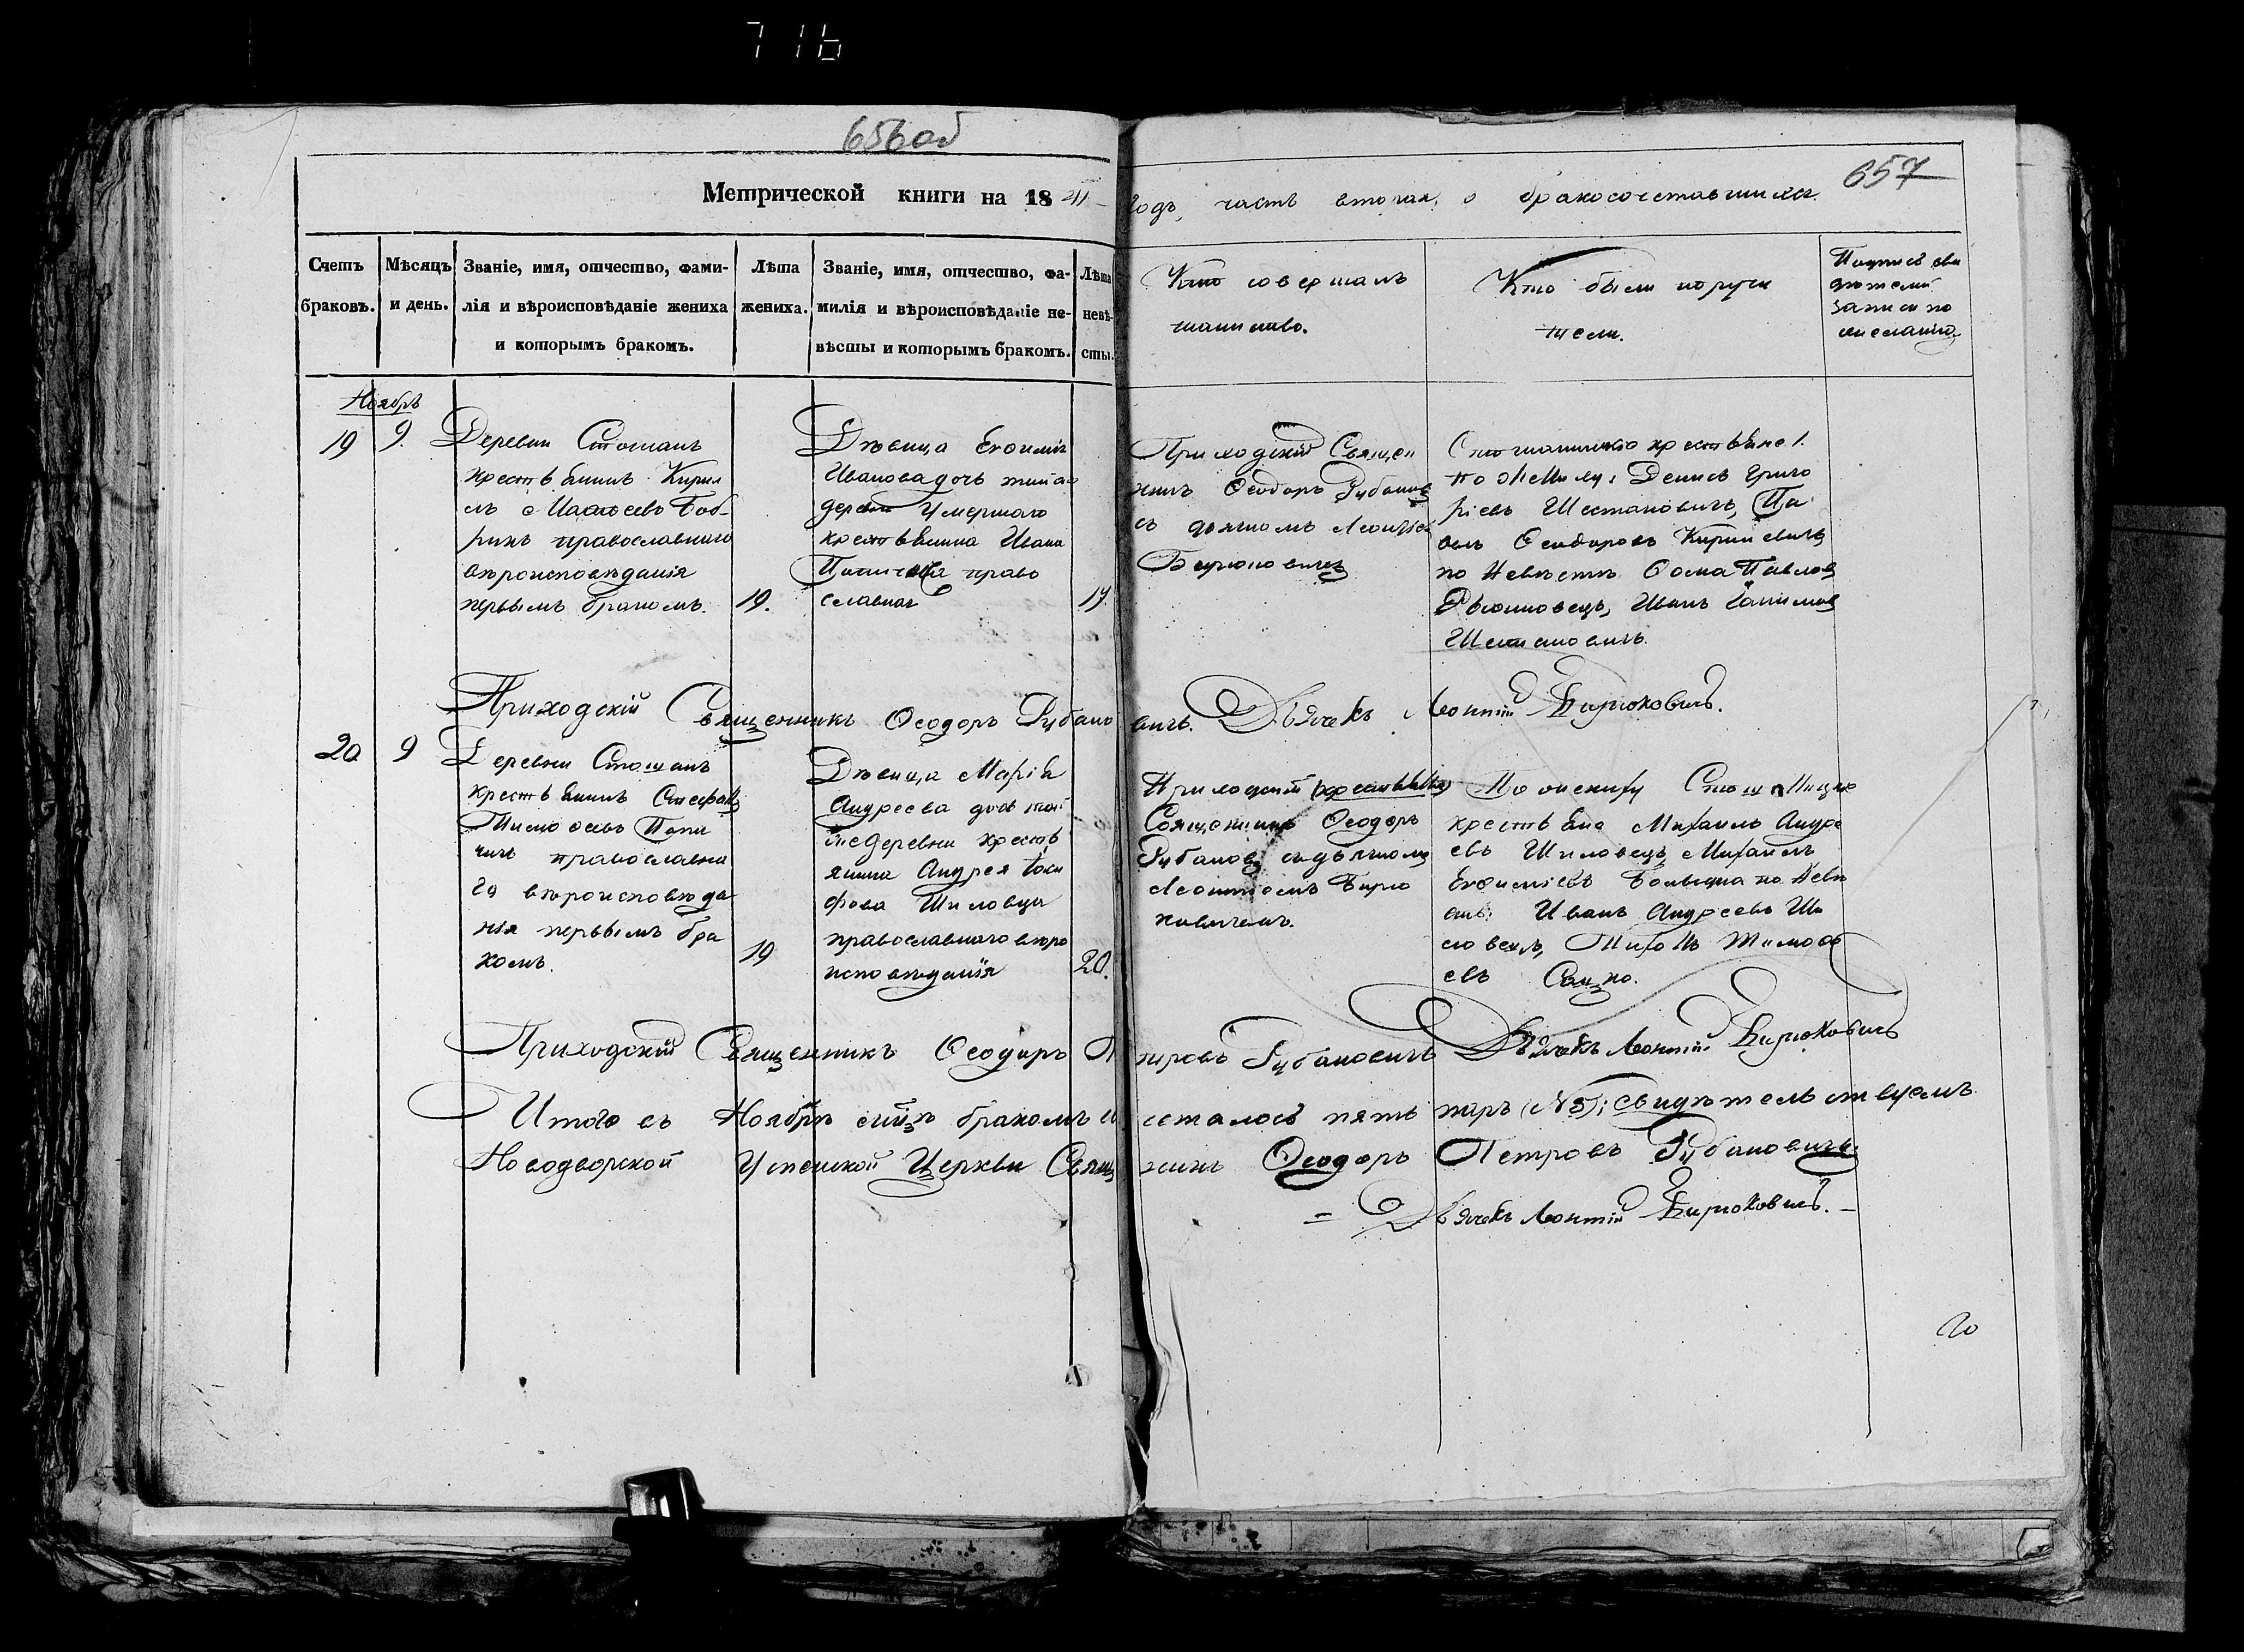 716
656об
657
Метрической книги на 1841 годъ, часть вторая, о бракосочетавшихся.
Счетъ браковъ.
Мѣсяцъ и день.
Званіе, имя, отчество, фами-
лія и вѣроисповѣданіе жениха
и которымъ бракомъ.
Лѣта
жениха.
Званіе, имя, отчество, фа-
милія и вѣроисповѣданіе не-
вѣсты и которымъ бракомъ.
Лѣта
невѣ-
сты.
Кто совершалъ
таинство.
Кто были поручи
тели.
Подпись сви
дѣтелей
записи по
желанію
Ноябрь
19
9.
Деревни Стошан
крестьянинъ Кирил
лъ
Боб-
ринъ православнаго
вѣроисповѣданія
первымъ бракомъ.
19.
Дѣвица Евѳимія
Иванова дочь тойже
деревни умершаго
крестьянина Ивана
право
славная
17.
Приходскій Священ
никъ Ѳеодоръ Рубанов
съ дьячкомъ Леонтіем
Бирюковичем
крестьяне
по жениху: Денисъ Григо
ріевъ Шестановичъ, Па
велъ Ѳеодоровъ
по невѣстѣ Ѳома Павлов
Иванъ
Шестановичъ.
Приходскій Священникъ Ѳеодоръ Рубановичъ. Дьячекъ Леонтій Бирюковичъ.
20
9
Деревни Стошан
крестьянинъ Стефанъ
Тимоѳеевъ Попи
чичъ православна
го вѣроисповѣда
нія первымъ бра
комъ.
19
Дѣвица Марія
Андреева дочь той
же деревни кресть
янина Андрея Іоси
фова Шиловца
православнаго вѣро
исповѣданія
20.
Приходскій
Священникъ Ѳеодоръ
Рубанов съ дьячкомъ
Леонтіемъ Бирю
ковичемъ.
По жениху
крестьяне Михаилъ Андре
евъ Шиловецъ, Михаилъ
Евѳиміевъ по невѣ
стѣ: Иванъ Андреевъ Ши
ловецъ, Тимоѳе
евъ
Приходскій Священникъ Ѳеодоръ Петровъ Рубановичъ Дьячекъ Леонтій Бирюковичъ
Итого въ Ноябрѣ симъ бракомъ сочеталось пять паръ (№5); свидѣтельствуемъ
Новодворской Успенской Церкви Священникъ Ѳеодоръ Петровъ Рубановичъ
= Дьячекъ Леонтій Бирюковичъ. –
20